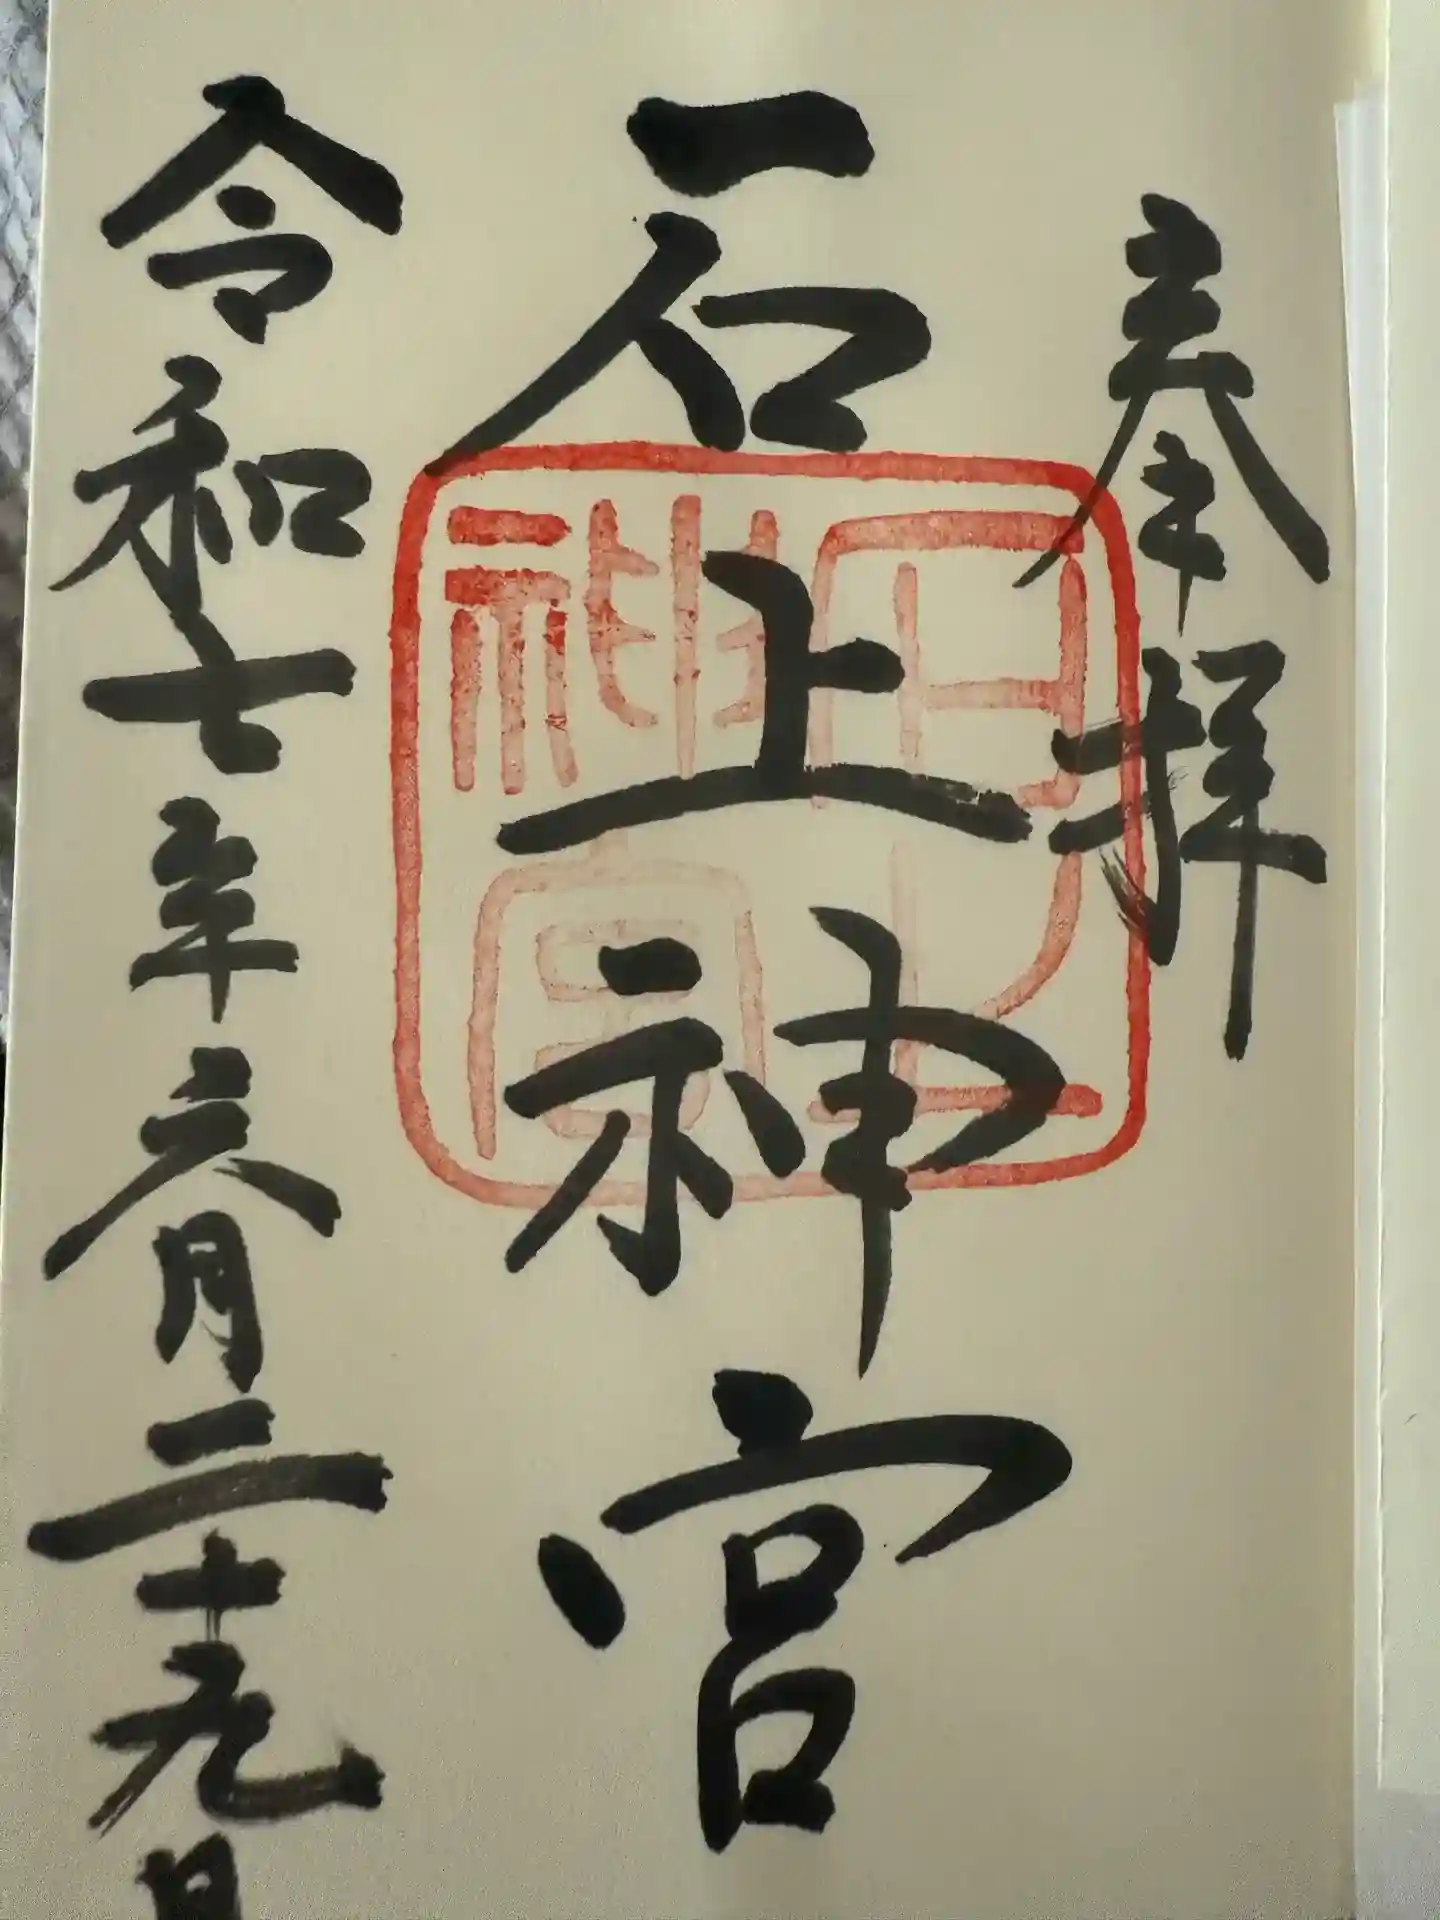 奉拝
石上神宮
令和七年六月二十九日
石上神宮